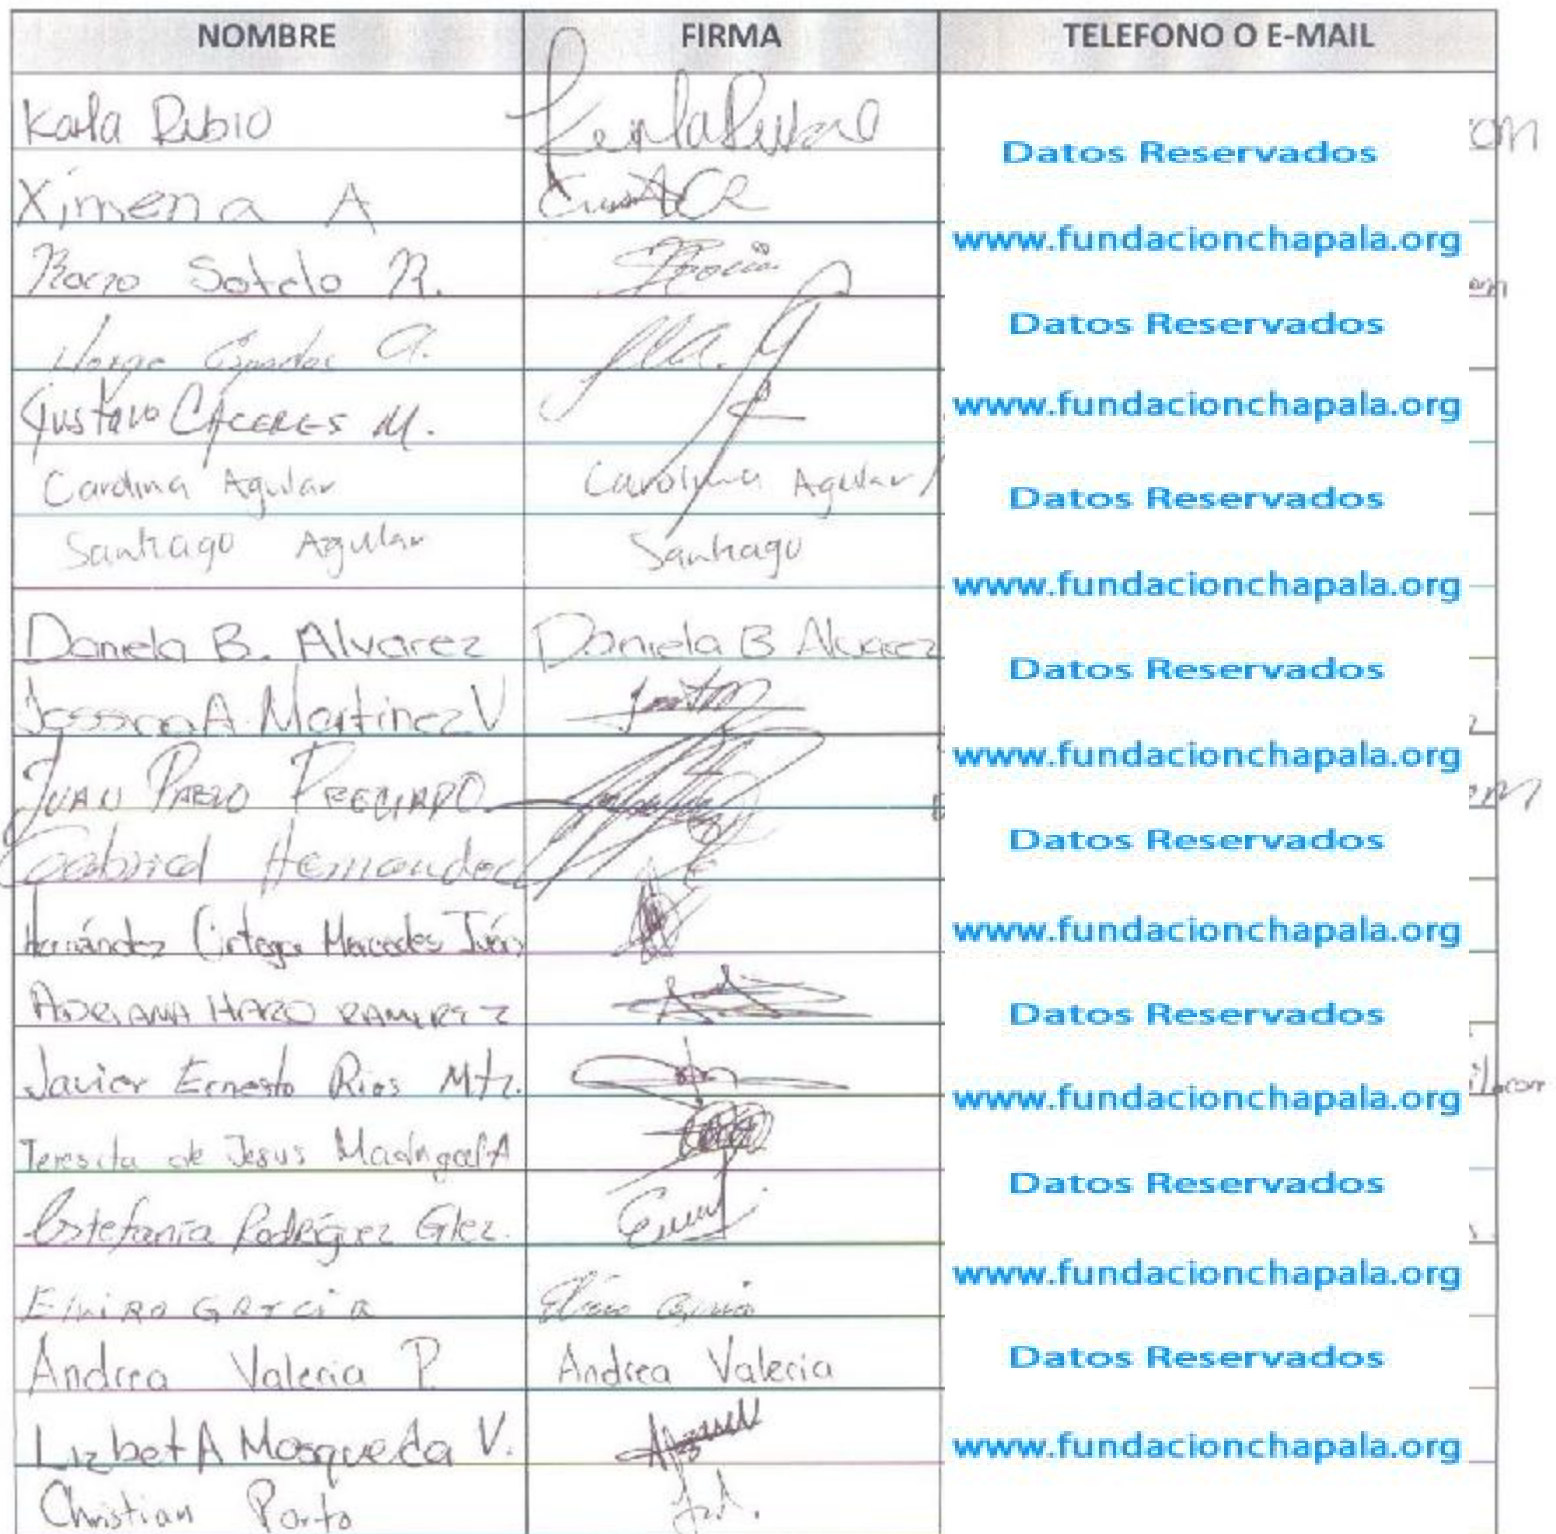 NOMBRE FIRMA TELEFONO O E-MAIL
Karla Rubio KarlaRubio
Datos Reservados om
Ximena A
www.fundacionchapala.org
Rocio Sotelo R. Rocio
om
Datos Reservados
Jorge A.
Gustavo CÁCERES M.
www.fundacionchapala.org
Carolina Aguilar Carolina Aguilar
Datos Reservados
Santiago Aguilar Santiago
www.fundacionchapala.org
Daniela B. Alvarez Daniela B Alvarez
Datos Reservados
Jessica A. Martinez V
www.fundacionchapala.org
JUAN PABLO PRECIADO
Datos Reservados
Gabriel Hernandez
Hernández Ortega Mercedes
www.fundacionchapala.org
ADRIANA HARO RAMIREZ
Datos Reservados
Javier Ernesto Rios Mtz.
www.fundacionchapala.org il.com
Teresita de Jesus Madrigal A
Datos Reservados
Estefanía Rodríguez Glez.
www.fundacionchapala.org
ElViRA GARCIA
Andrea Valeria P. Andrea Valeria
Datos Reservados
Lizbet A Mosqueda V.
www.fundacionchapala.org
Christian Porto